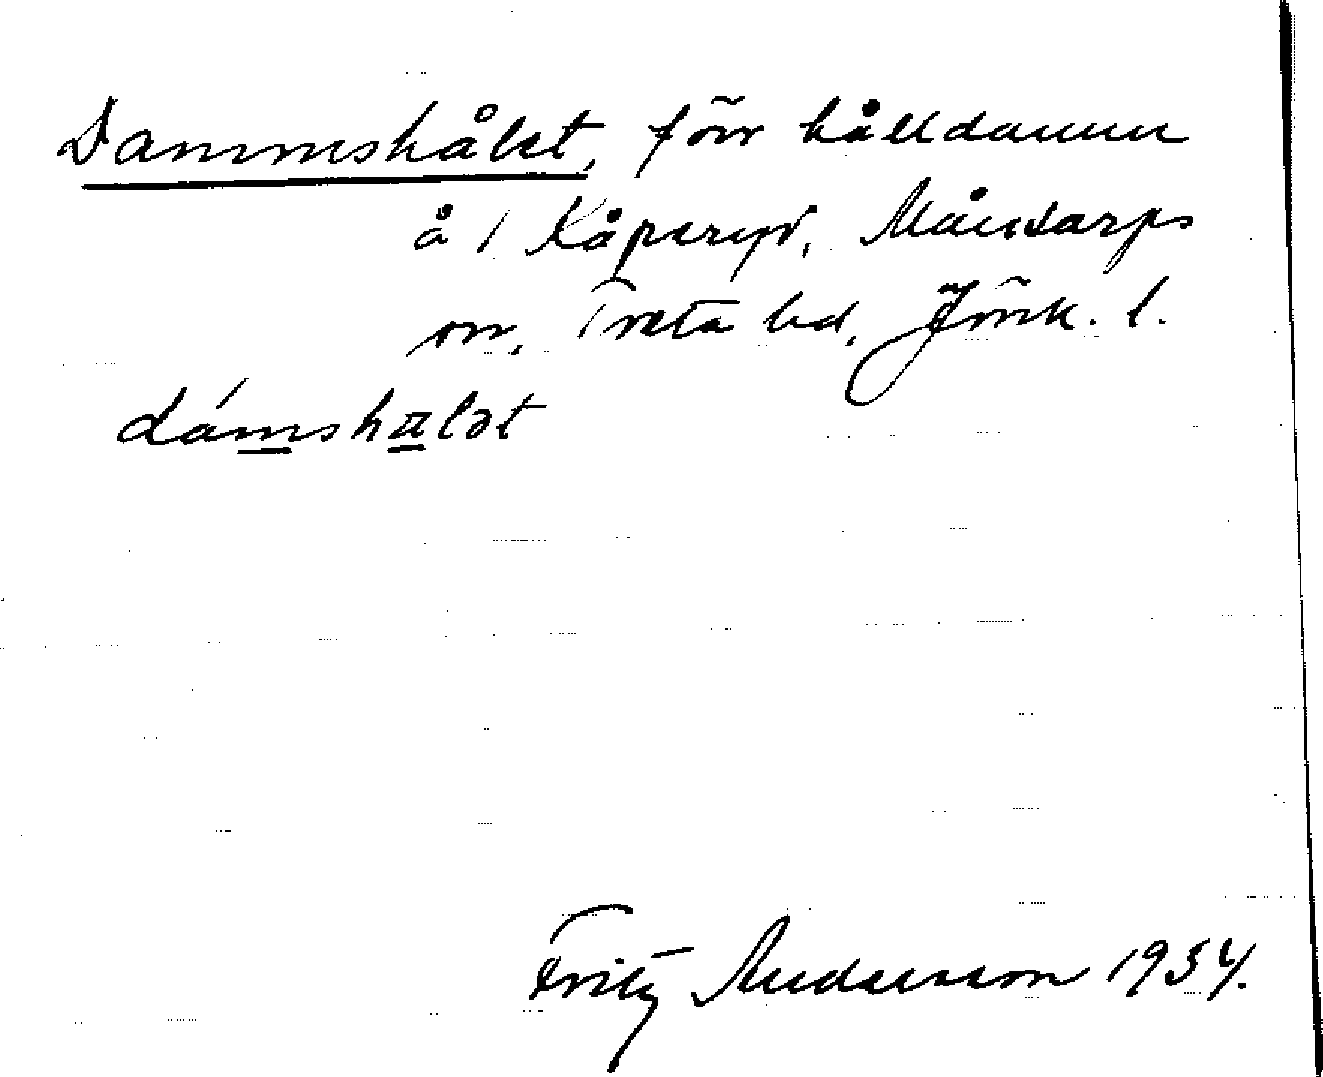 Dammshålet, förr hålldamm
å 1 Kåperyd, Månsarps
sn, Tveta hd, Jönk. l.
dámshalət
Fritz Andersson 1934.